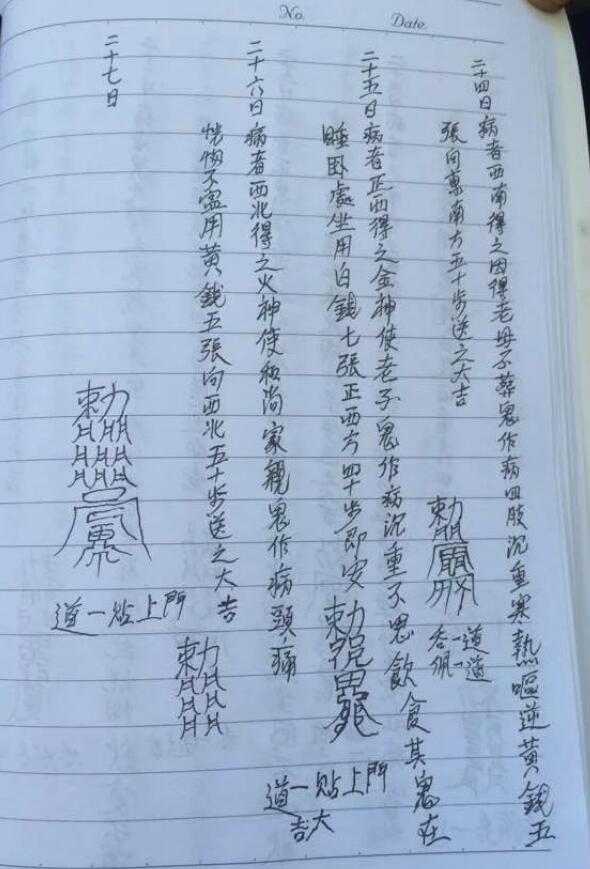 No.
Date.
二十四日病者西南得之因得老母不葬鬼作病四肢沉重寒熱嘔逆黃錢五
張向東南方五十步送之大吉
勅
一道吞
一道佩
二十五日病者正西得之金神使老子鬼作病沉重不思飲食其鬼在
睡臥處坐用白錢七張正西方四十步即安
勅
一道貼門上
大吉
二十六日病者西北得之火神使和尚家親鬼作病頭痛
恍惚不寧用黃錢五張向西北五十步送之大吉
勅
一道貼門上
二十七日
勅